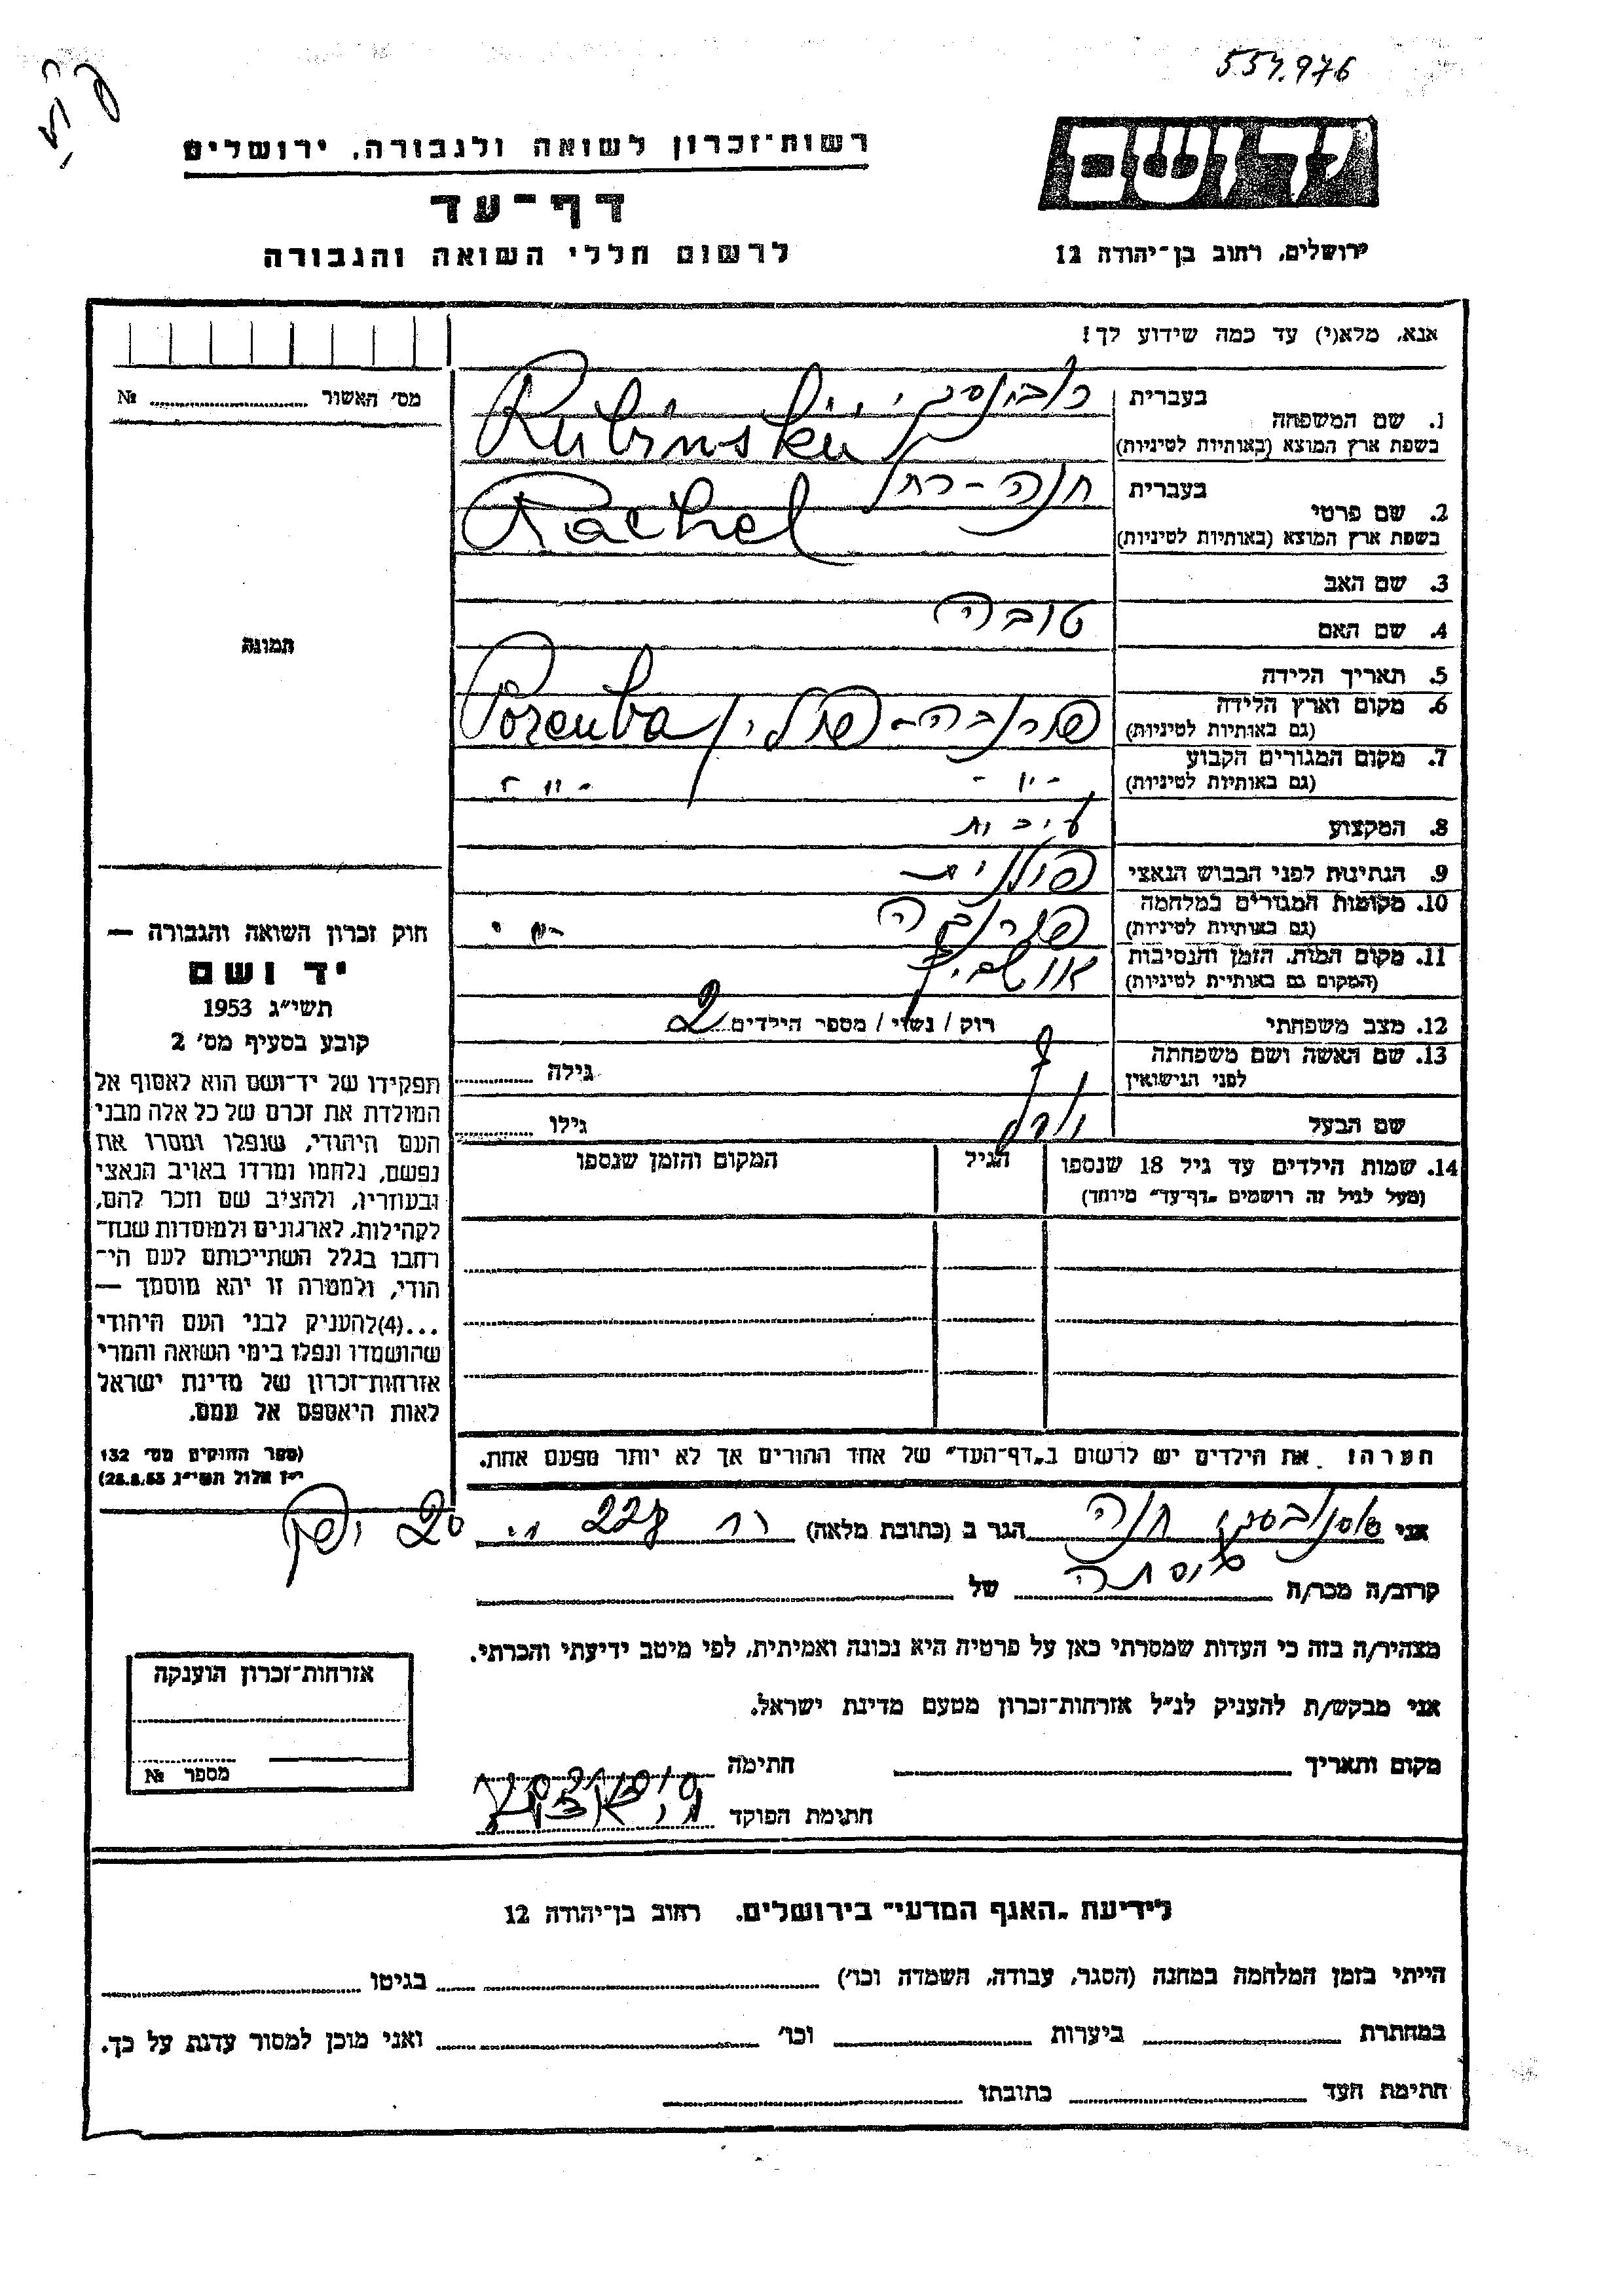 557.976
יד ושם
רשות־זכרון לשואה ולגבורה, ירושלים
דף־עד
לרשום חללי השואה והגבורה
ירושלים, רחוב בן־יהודה 12
אנא, מלא(י) עד כמה שידוע לך!
מס' האשור №
1. שם המשפחה
בעברית
רובינסקי
בשפת ארץ המוצא (באותיות לטיניות)
Rubinski
2. שם פרטי
בעברית
חנה-רחל
בשפת ארץ המוצא (באותיות לטיניות)
Rachel
3. שם האב
4. שם האם טובה
5. תאריך הלידה
6. מקום וארץ הלידה
(גם באותיות לטיניות)
פורנבה-פולין Porenba
7. מקום המגורים הקבוע
(גם באותיות לטיניות)
-"- -"-
8. המקצוע
9. הנתינות לפני הכבוש הנאצי פולנית
10. מקומות המגורים במלחמה
(גם באותיות לטיניות)
-"-
11. מקום המות, הזמן והנסיבות
(המקום גם באותיות לטיניות)
אושביץ
12. מצב משפחתי רוק / נשוי / מספר הילדים 2
13. שם האשה ושם משפחתה
לפני הנישואין
גילה
שם הבעל
גילו
14. שמות הילדים עד גיל 18 שנספו
(מעל לגיל זה רושמים „דף־עד" מיוחד)
הגיל
המקום והזמן שנספו
הערה! את הילדים יש לרשום ב„דף־העד" של אחד ההורים אך לא יותר מפעם אחת.
תמונה
חוק זכרון השואה והגבורה —
יד ושם
תשי"ג 1953
קובע בסעיף מס' 2
תפקידו של יד־ושם הוא לאסוף אל
המולדת את זכרם של כל אלה מבני
העם היהודי, שנפלו ומסרו את
נפשם, נלחמו ומרדו באויב הנאצי
ובעוזריו, ולהציב שם וזכר להם,
לקהילות, לארגונים ולמוסדות שנח־
רבו בגלל השתייכותם לעם הי־
הודי, ולמטרה זו יהא מוסמך —
...(4)להעניק לבני העם היהודי
שהושמדו ונפלו בימי השואה והמרי
אזרחות־זכרון של מדינת ישראל
לאות היאספם אל עמם.
(ספר החוקים מס' 132
י"ז אלול תשי"ג 28.8.53)
אני חנה הגר ב (כתובת מלאה) רח 228
קרוב/ה מכר/ה של
מצהיר/ה בזה כי העדות שמסרתי כאן על פרטיה היא נכונה ואמיתית, לפי מיטב ידיעתי והכרתי.
אני מבקש/ת להעניק לנ"ל אזרחות־זכרון מטעם מדינת ישראל.
מקום ותאריך חתימה
חתימת הפוקד
אזרחות־זכרון הוענקה
מספר №
לידיעת „האגף המדעי" בירושלים. רחוב בן־יהודה 12
הייתי בזמן המלחמה במחנה (הסגר, עבודה, השמדה וכו') בגיטו
במחתרת ביערות וכו' ואני מוכן למסור עדות על כך.
חתימת העד כתובתו